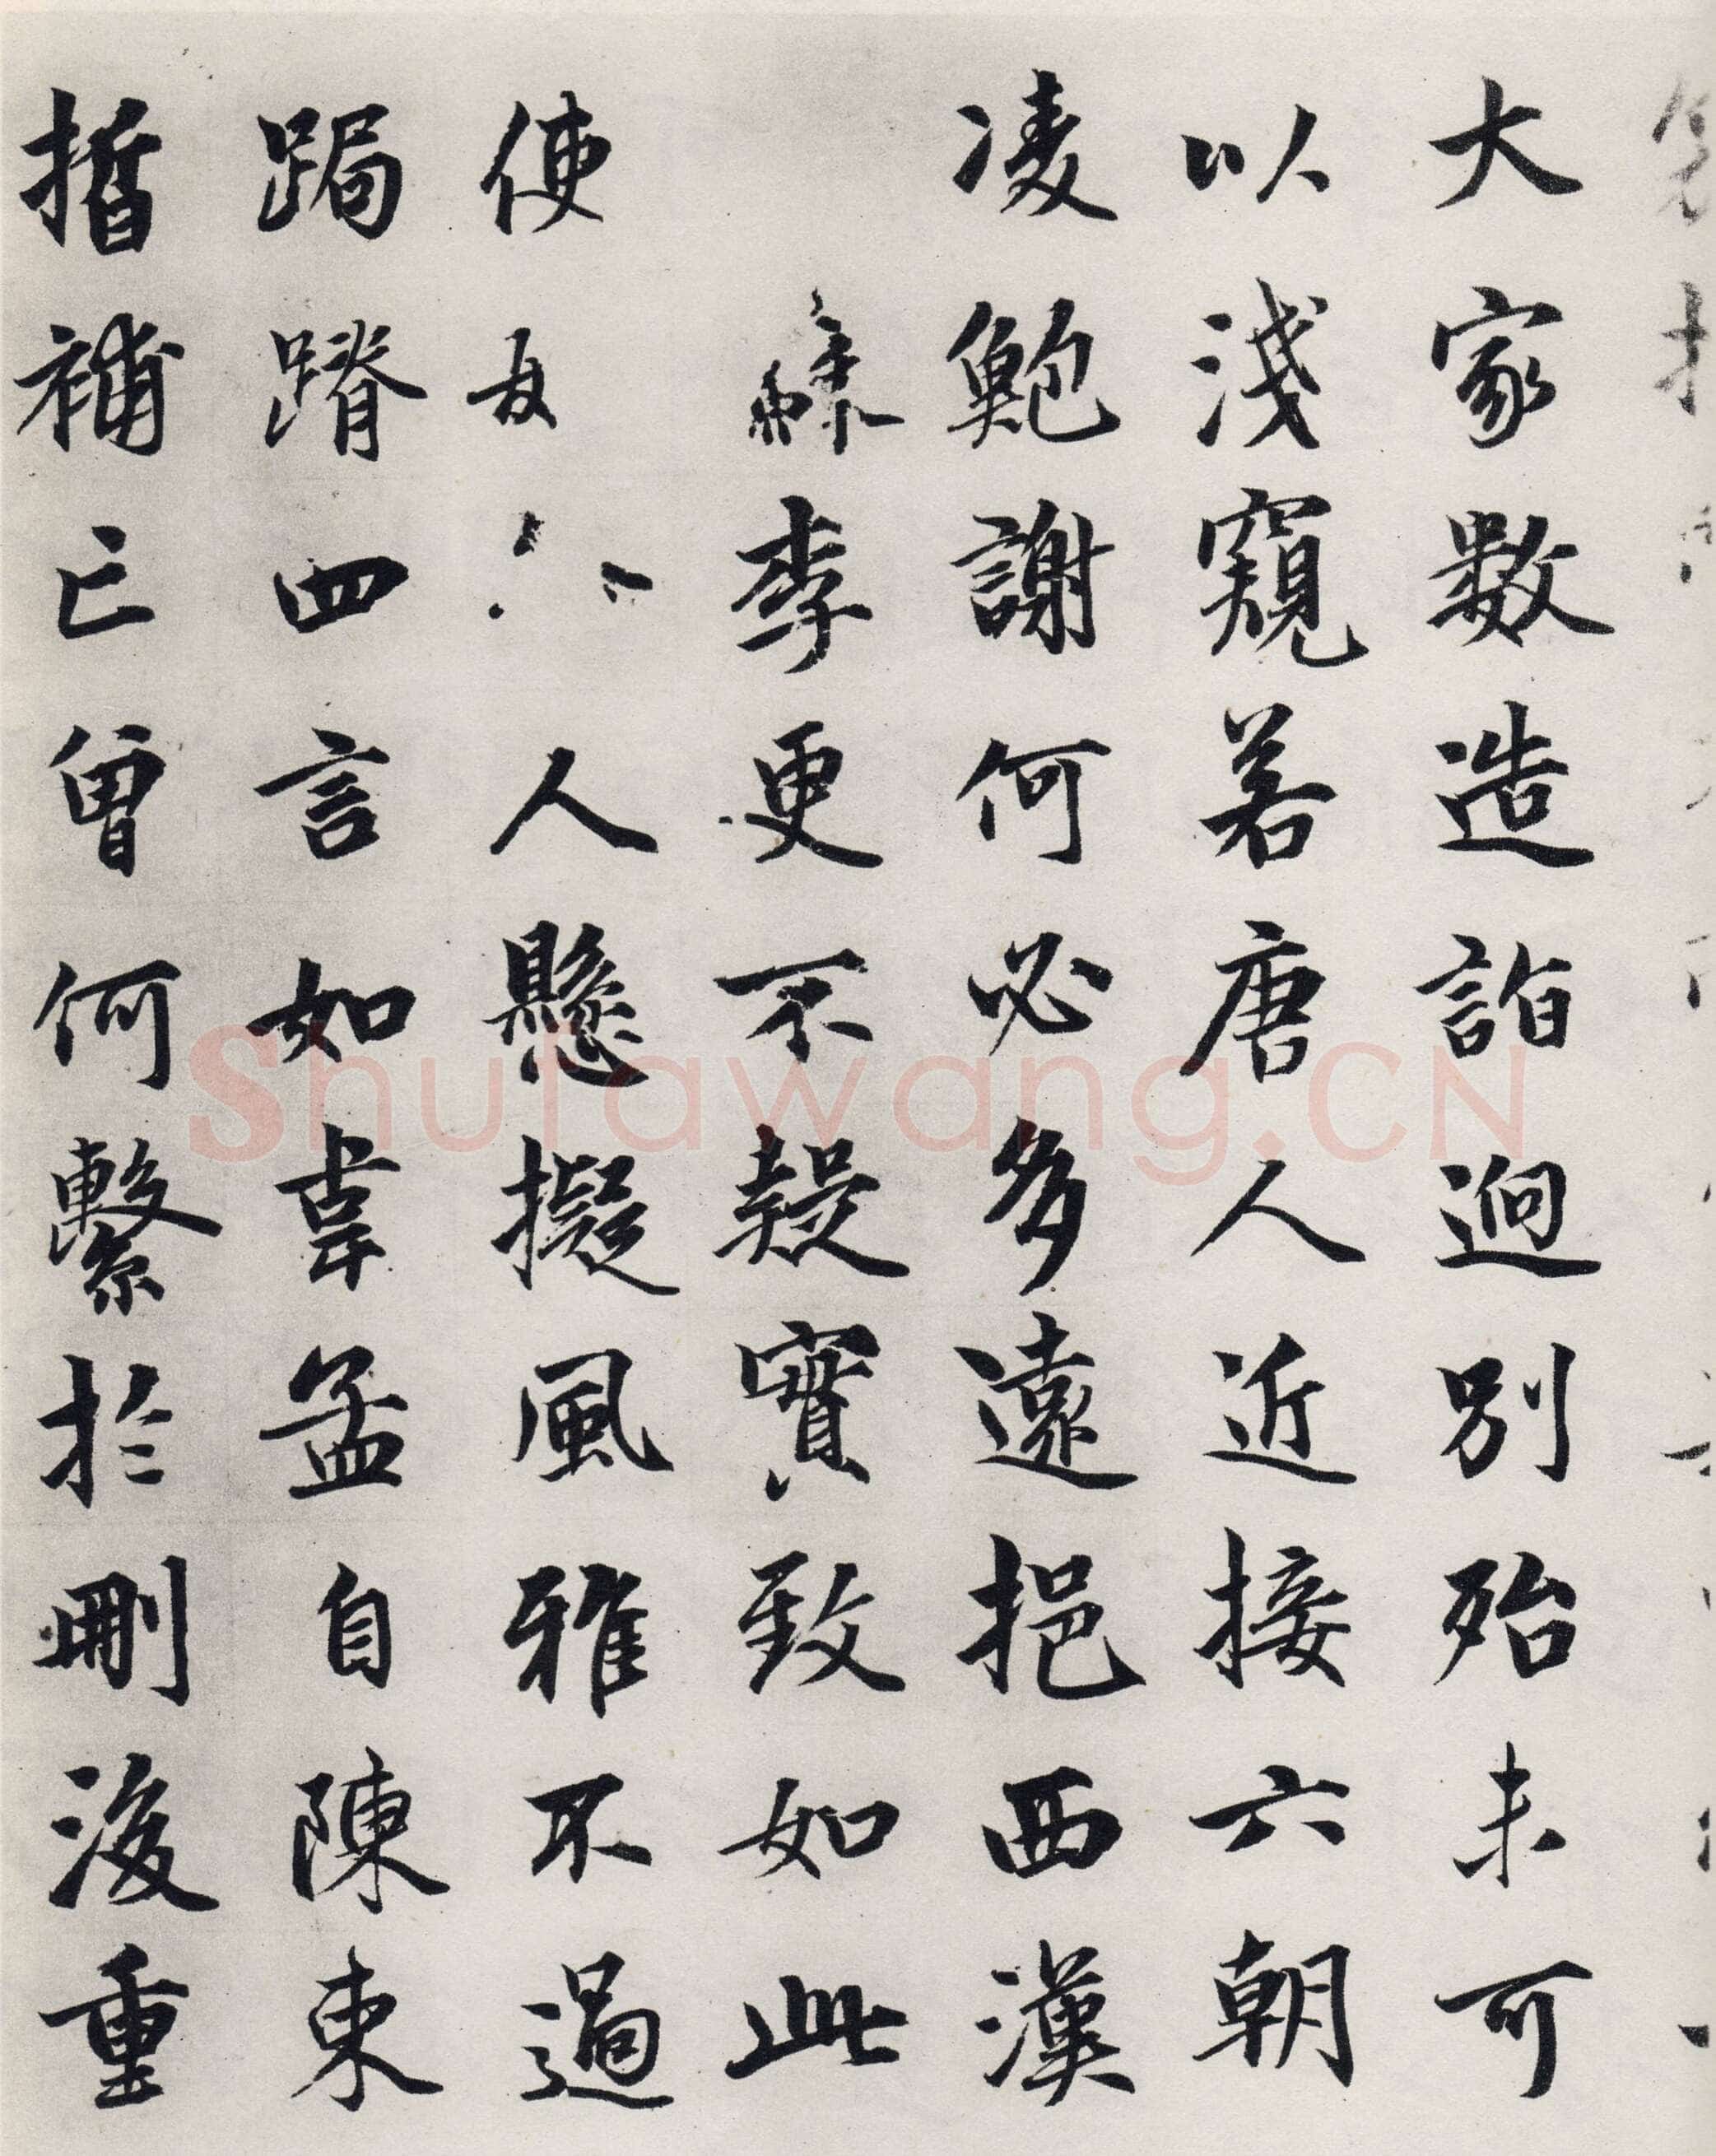 大家數造詣迥別殆未可
以淺窺若唐人近接六朝
凌鮑謝何必多遠挹西漢
蘇李更不疑實致如此
使人懸擬風雅不過
跼蹐四言如韋孟自陳束
晳補亡曾何繫於刪後重
Shufawang.CN